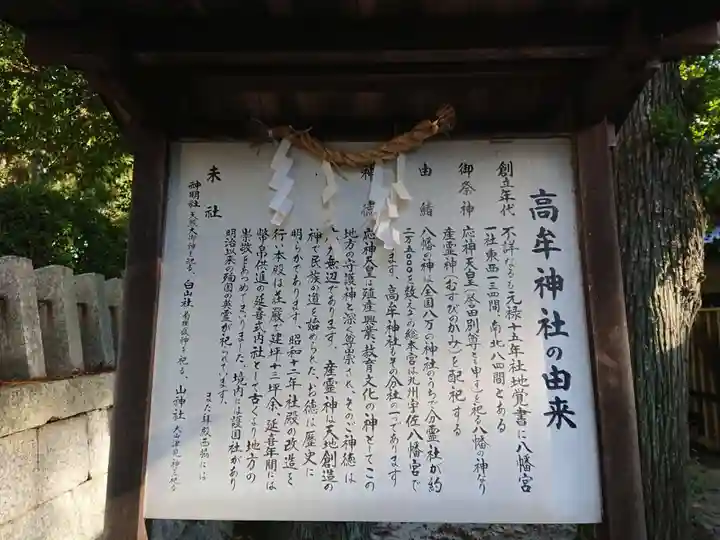 高牟神社の由来
創立年代 不詳なるも元禄十五年社地覚書に八幡宮
一社東西一三四間、南北八四間とある
御祭神 応神天皇(誉田別尊とも申す)を祀る八幡の神なり
産霊神(むすびのかみ)を配祀する
由緒 八幡の神は全国八万の神社のうちで分霊社が約
二万五〇〇〇を数えその総本宮は九州宇佐八幡宮で
ます。高牟神社もその分社の一つであります
神徳 応神天皇は殖産興業、教育文化の神としてこの
地方の守護神と深く尊崇され、そのご神徳は
無辺であります。産霊神は天地創造の
神で民族の道を始められた、お徳は歴史に
明らかであります、昭和十二年社殿の改造を
行い本殿は荘厳で建坪十三坪余、延喜年間には
幣帛供進の延喜式内社として古くより地方の
崇敬をあつめてまいりました、境内には護国社があり
明治以来の殉国の英霊が祀られています。
また拝殿西脇には
末社
神明社 天照大御神を祀る、白山社 菊理姫神を祀る、山神社 大山津見神を祀る